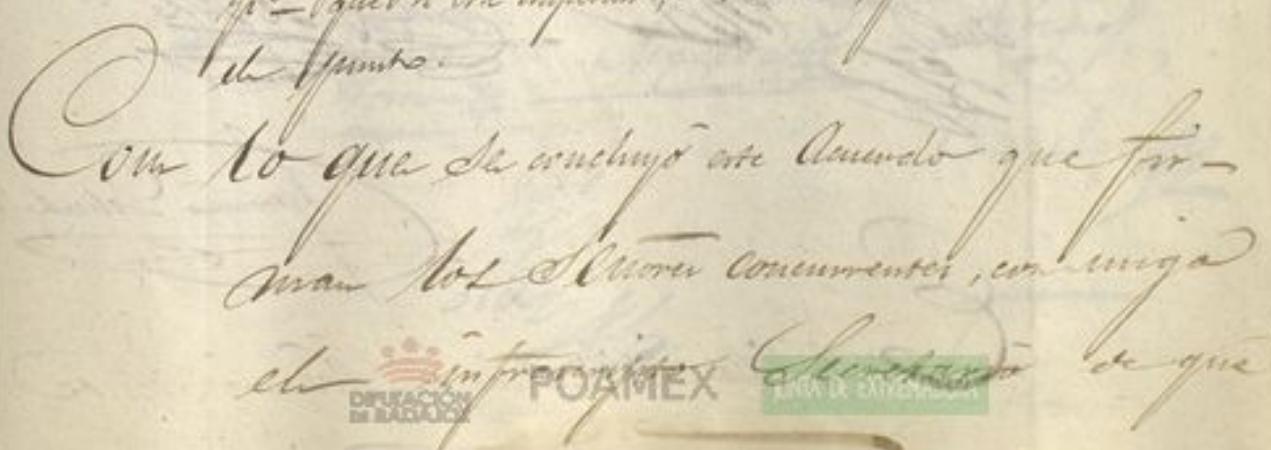 de Junio.
Con lo que se concluyó este Acuerdo que fir-
man los Señores concurrentes, conmigo
el infrascripto Secretario de que
DIPUTACIÓN
DE BADAJOZ
POAMEX
JUNTA DE EXTREMADURA